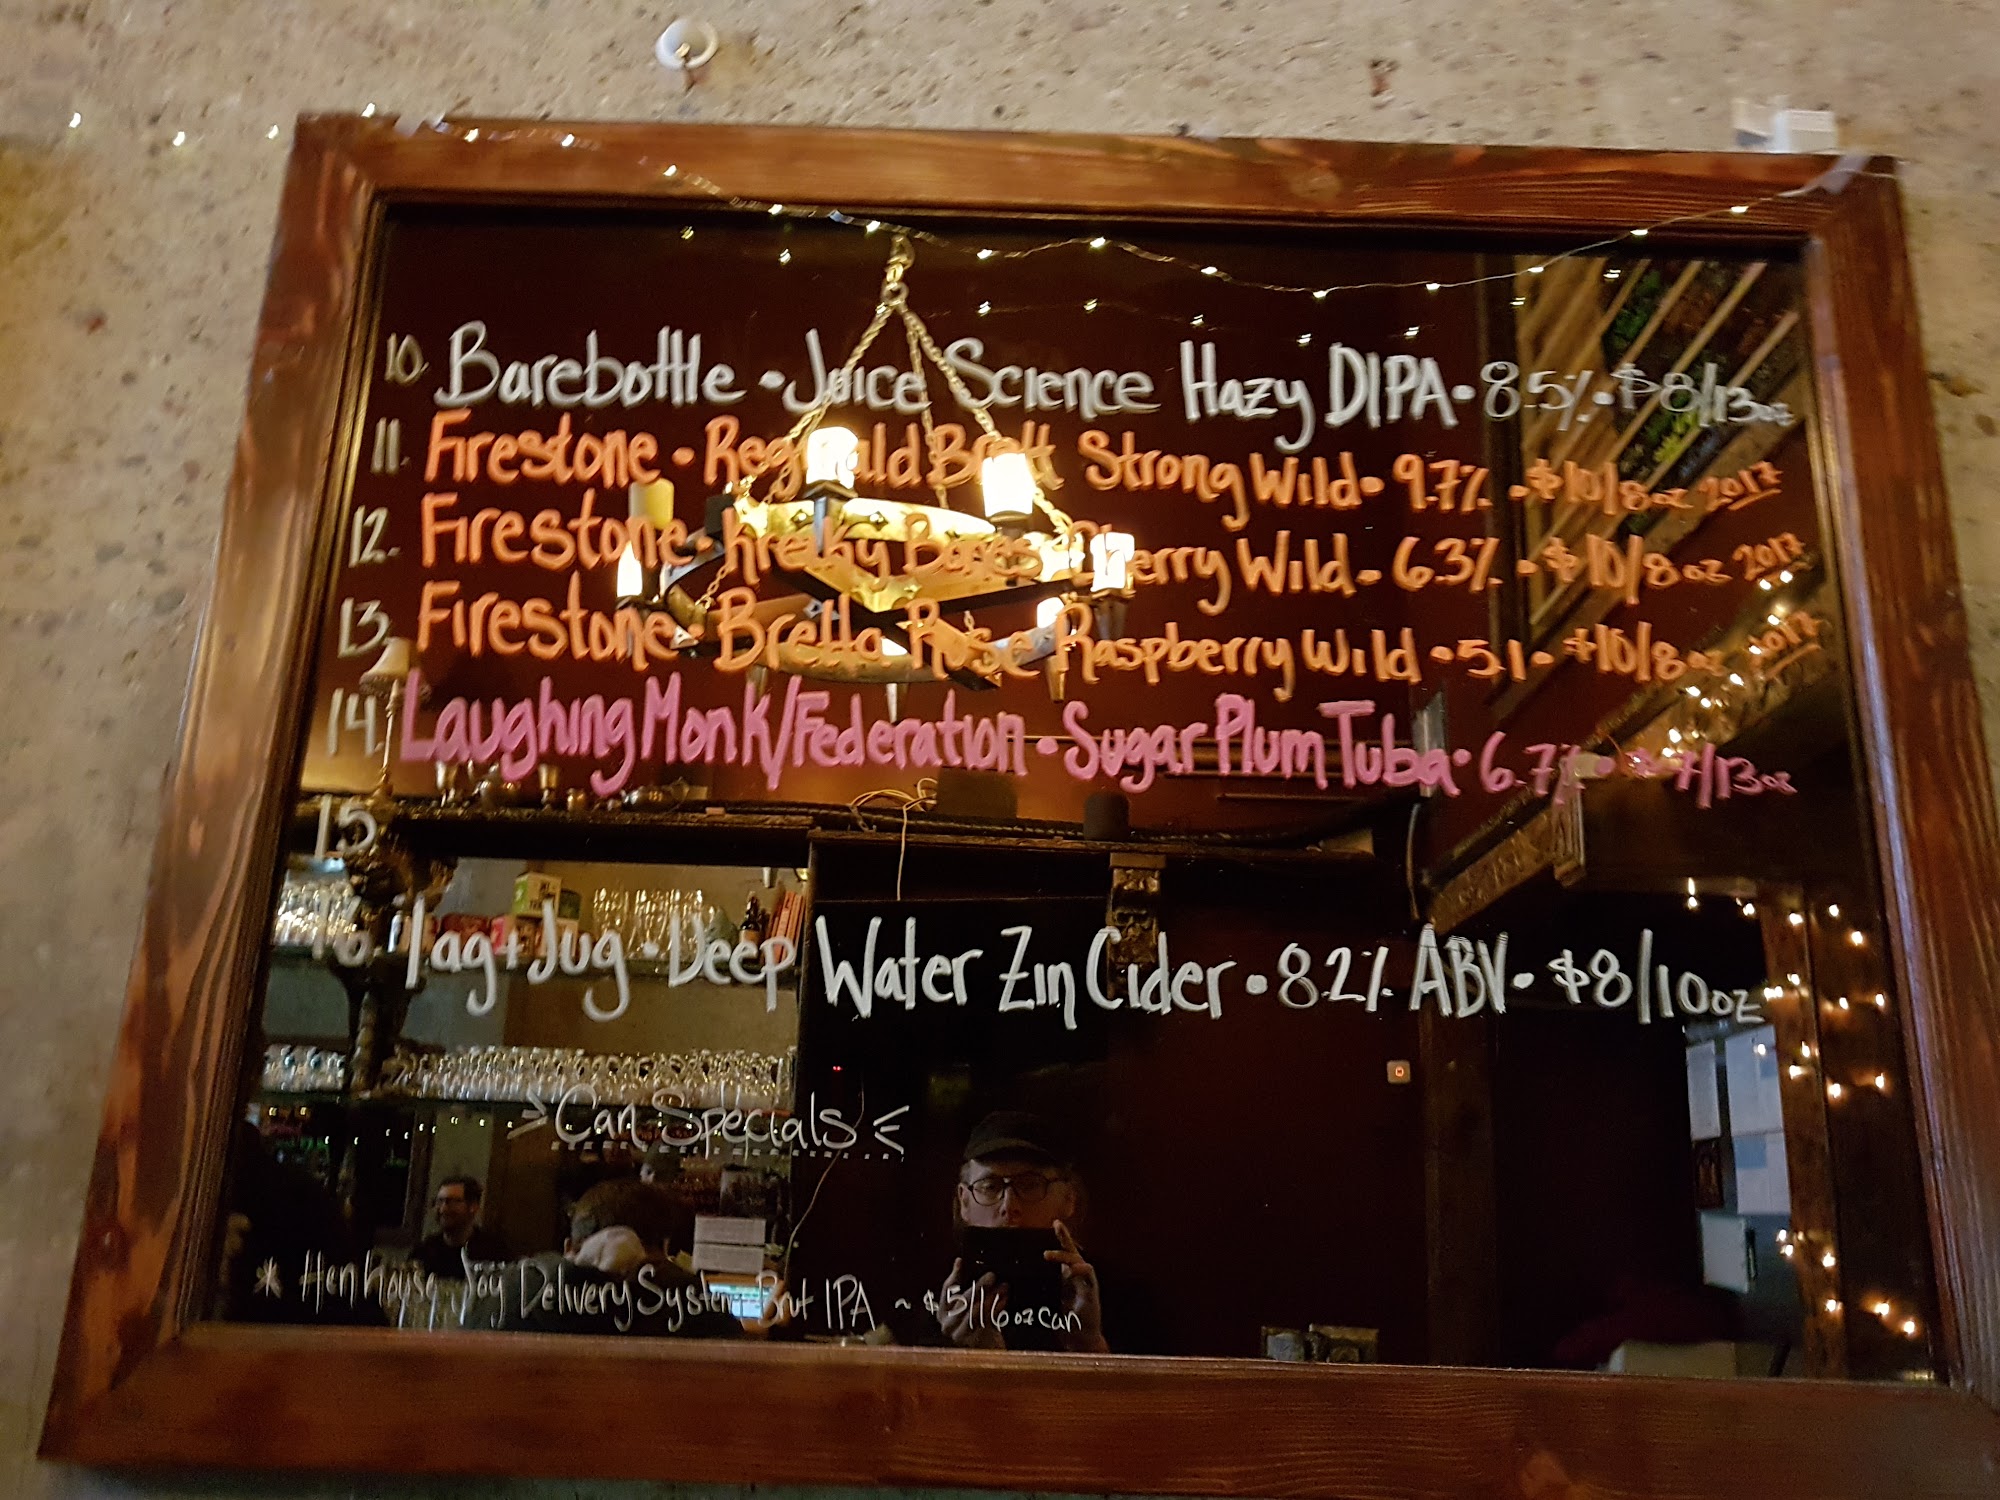 10. Barebottle • Juice Science Hazy DIPA • 8.5% • $8/13oz
11. Firestone • Reginald Brett Strong Wild • 9.7% • $10/8oz 2017
12. Firestone • Kreaky Bones Cherry Wild • 6.3% • $10/8oz 2017
13. Firestone • Bretta Rose Raspberry Wild • 5.1 • $10/8oz 2017
14. Laughing Monk/Federation • Sugar Plum Tuba • 6.7% • $7/13oz
15.
16. Tag + Jug • Deep Water Zin Cider • 8.2% ABV • $8/10oz
Can Specials
* Henhouse Joy Delivery System Brut IPA ~ $5/16oz can